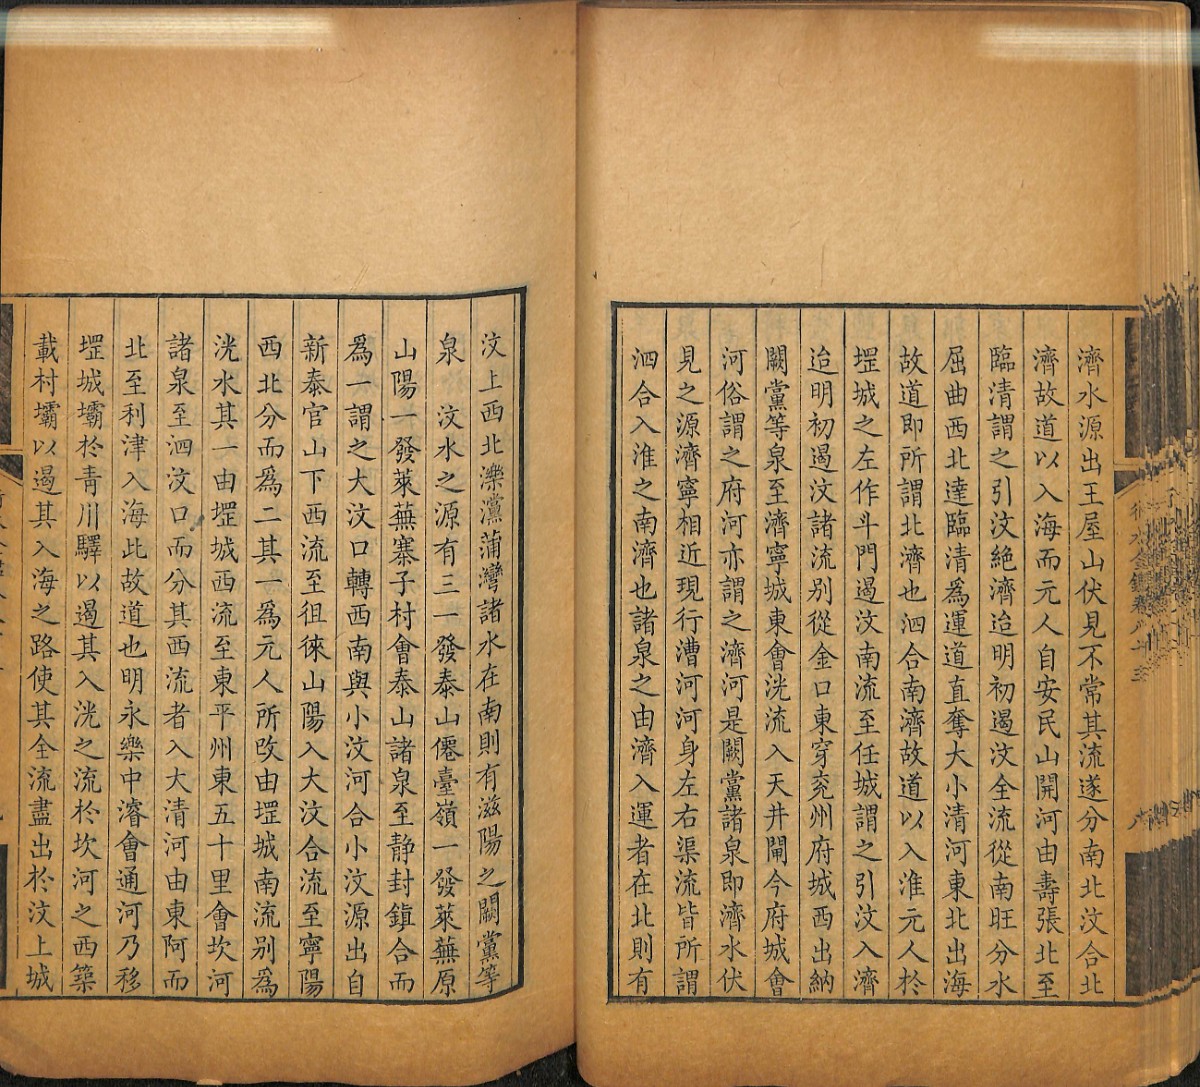 濟水源出王屋山伏見不常其流遂分南北汶合北
濟故道以入海而元人自安民山開河由壽張北至
臨清謂之引汶絶濟迨明初遏汶全流從南旺分水
屈曲西北達臨清爲運道直奪大小清河東北出海
故道即所謂北濟也泗合南濟故道以入淮元人於
堽城之左作斗門遏汶南流至任城謂之引汶入濟
迨明初遏汶諸流别從金口東穿兖州府城西出納
闕黨等泉至濟寧城東會洸流入天井閘今府城會
河俗謂之府河亦謂之濟河是闕黨諸泉即濟水伏
見之源濟寧相近現行漕河河身左右渠流皆所謂
泗合入淮之南濟也諸泉之由濟入運者在北則有
汶上西北濼澢蒲灣諸水在南則有滋陽之闕黨等
泉 汶水之源有三一發泰山僊臺嶺一發萊蕪原
山陽一發萊蕪寨子村會泰山諸泉至静封鎮合而
爲一謂之大汶口轉西南與小汶河合小汶源出自
新泰官山下西流至徂徠山陽入大汶合流至寧陽
西北分而爲二其一爲元人所改由堽城南流别爲
洸水其一由堽城西流至東平州東五十里會坎河
諸泉至泗汶口而分其西流者入大清河由東阿而
北至利津入海此故道也明永樂中濬會通河乃移
堽城壩於青川驛以遏其入洸之流於坎河之西築
載村壩以遏其入海之路使其全流盡出於汶上城